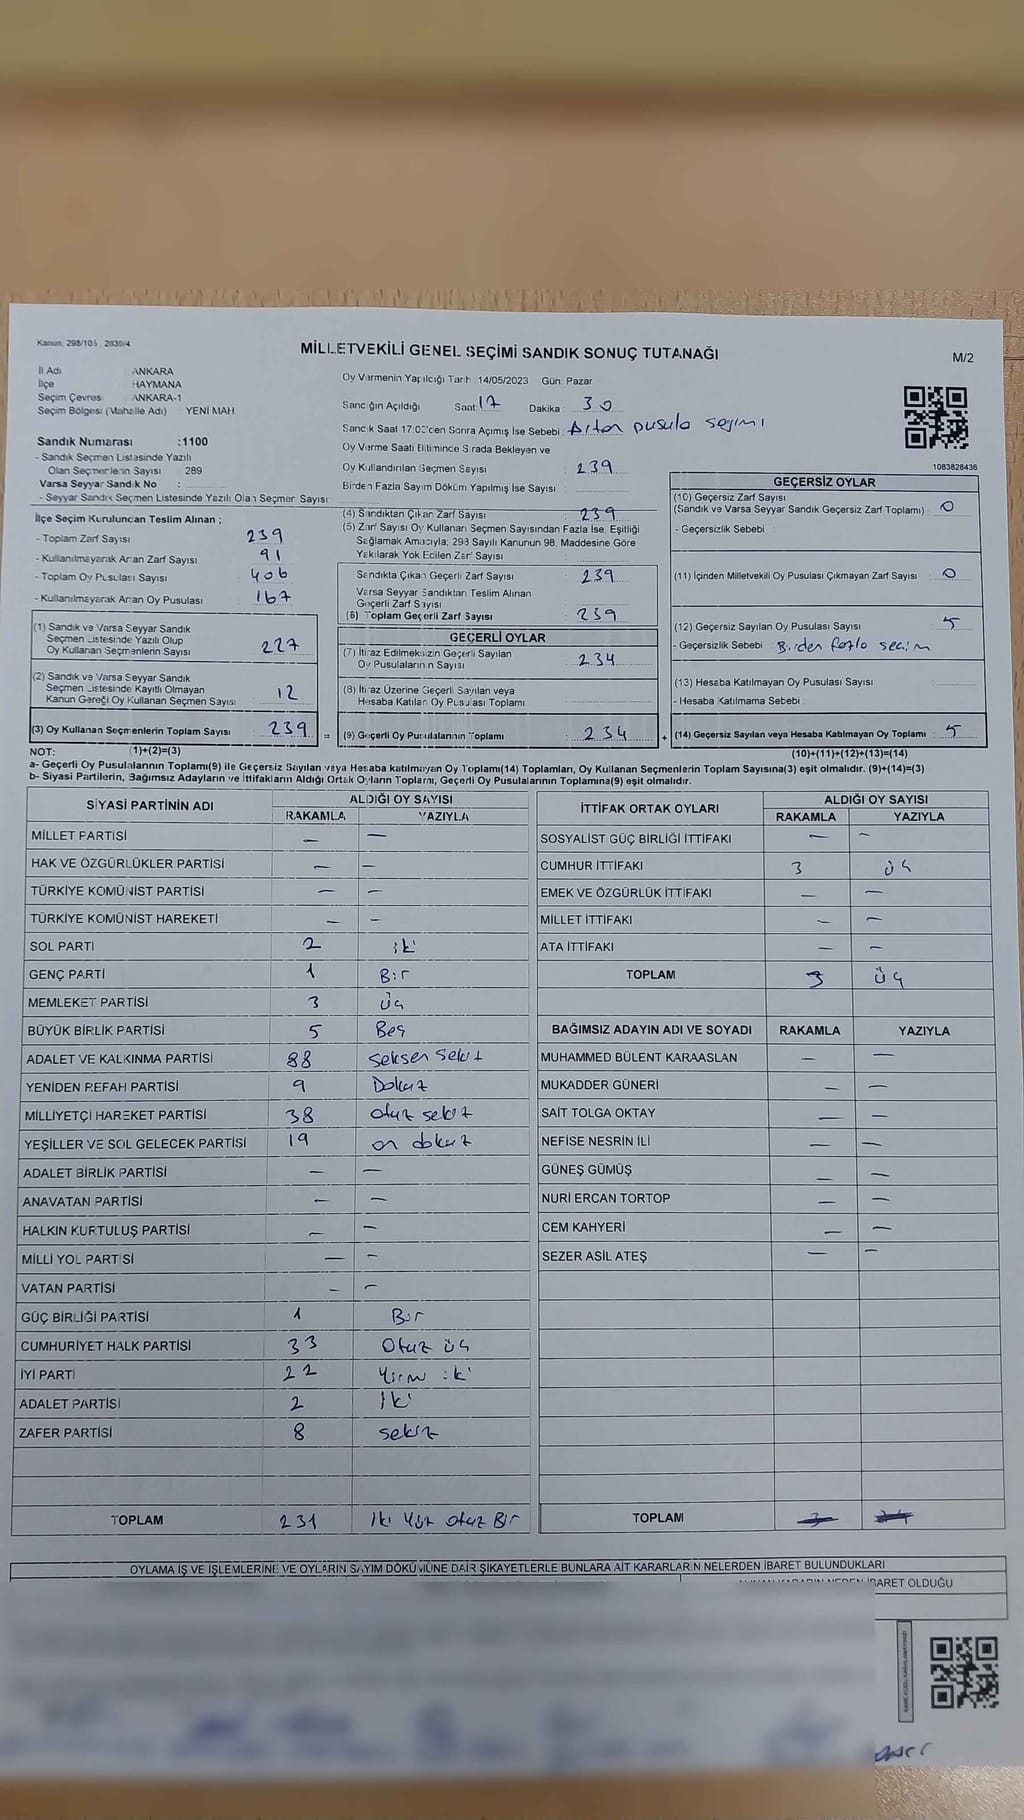 Kanun: 298/105, 2839/4
MİLLETVEKİLİ GENEL SEÇİMİ SANDIK SONUÇ TUTANAĞI
M/2
İl Adı ANKARA
İlçe HAYMANA
Seçim Çevresi ANKARA-1
Seçim Bölgesi (Mahalle Adı) : YENİ MAH
Oy Vermenin Yapıldığı Tarih :14/05/2023 Gün: Pazar
Sandığın Açıldığı Saat: 17 Dakika : 30
Sandık Saat 17:00'den Sonra Açılmış İse Sebebi : Artan pusula seçimi
Sandık Numarası :1100
- Sandık Seçmen Listesinde Yazılı
Olan Seçmenlerin Sayısı : 289
Varsa Seyyar Sandık No :
- Seyyar Sandık Seçmen Listesinde Yazılı Olan Seçmer Sayısı
Oy Verme Saati Bitiminde Sırada Bekleyen ve
Oy Kullandırılan Seçmen Sayısı : 239
Birden Fazla Sayım Döküm Yapılmış İse Sayısı :
1083828436
İlçe Seçim Kurulundan Teslim Alınan ;
- Toplam Zarf Sayısı 239
- Kullanılmayarak Artan Zarf Sayısı 91
- Toplam Oy Pusulası Sayısı 406
- Kullanılmayarak Artan Oy Pusulası 167
(1) Sandık ve Varsa Seyyar Sandık
Seçmen Listesinde Yazılı Olup
Oy Kullanan Seçmenlerin Sayısı : 227
(2) Sandık ve Varsa Seyyar Sandık
Seçmen Listesinde Kayıtlı Olmayan
Kanun Gereği Oy Kullanan Seçmen Sayısı : 12
(3) Oy Kullanan Seçmenlerin Toplam Sayısı : 239
(4) Sandıktan Çıkan Zarf Sayısı : 239
(5) Zarf Sayısı Oy Kullanan Seçmen Sayısından Fazla İse, Eşitliği
Sağlamak Amacıyla; 298 Sayılı Kanunun 98. Maddesine Göre
Yakılarak Yok Edilen Zarf Sayısı :
Sandıkta Çıkan Geçerli Zarf Sayısı : 239
Varsa Seyyar Sandıktan Teslim Alınan
Geçerli Zarf Sayısı :
(6) Toplam Geçerli Zarf Sayısı : 239
GEÇERLİ OYLAR
(7) İtiraz Edilmeksizin Geçerli Sayılan
Oy Pusulalarının Sayısı : 234
(8) İtiraz Üzerine Geçerli Sayılan veya
Hesaba Katılan Oy Pusulası Toplamı :
= (9) Geçerli Oy Pusulalarının Toplamı : 234
GEÇERSİZ OYLAR
(10) Geçersiz Zarf Sayısı
(Sandık ve Varsa Seyyar Sandık Geçersiz Zarf Toplamı) : 0
- Geçersizlik Sebebi :
(11) İçinden Milletvekili Oy Pusulası Çıkmayan Zarf Sayısı : 0
(12) Geçersiz Sayılan Oy Pusulası Sayısı : 5
- Geçersizlik Sebebi : Birden fazla seçim
(13) Hesaba Katılmayan Oy Pusulası Sayısı :
- Hesaba Katılmama Sebebi :
+ (14) Geçersiz Sayılan veya Hesaba Katılmayan Oy Toplamı : 5
NOT: (1)+(2)=(3) (10)+(11)+(12)+(13)=(14)
a- Geçerli Oy Pusulalarının Toplamı(9) ile Geçersiz Sayılan veya Hesaba katılmayan Oy Toplamı(14) Toplamları, Oy Kullanan Seçmenlerin Toplam Sayısına(3) eşit olmalıdır. (9)+(14)=(3)
b- Siyasi Partilerin, Bağımsız Adayların ve İttifakların Aldığı Ortak Oyların Toplamı, Geçerli Oy Pusulalarının Toplamına(9) eşit olmalıdır.
SİYASİ PARTİNİN ADI ALDIĞI OY SAYISI
RAKAMLA YAZIYLA
MİLLET PARTİSİ — —
HAK VE ÖZGÜRLÜKLER PARTİSİ — —
TÜRKİYE KOMÜNİST PARTİSİ — —
TÜRKİYE KOMÜNİST HAREKETİ — —
SOL PARTİ 2 iki
GENÇ PARTİ 1 Bir
MEMLEKET PARTİSİ 3 üç
BÜYÜK BİRLİK PARTİSİ 5 Beş
ADALET VE KALKINMA PARTİSİ 88 seksen sekiz
YENİDEN REFAH PARTİSİ 9 Dokuz
MİLLİYETÇİ HAREKET PARTİSİ 38 otuz sekiz
YEŞİLLER VE SOL GELECEK PARTİSİ 19 on dokuz
ADALET BİRLİK PARTİSİ — —
ANAVATAN PARTİSİ — —
HALKIN KURTULUŞ PARTİSİ — —
MİLLİ YOL PARTİSİ — —
VATAN PARTİSİ — —
GÜÇ BİRLİĞİ PARTİSİ 1 Bir
CUMHURİYET HALK PARTİSİ 33 Otuz üç
İYİ PARTİ 22 Yirmi iki
ADALET PARTİSİ 2 İki
ZAFER PARTİSİ 8 sekiz
TOPLAM 231 İki Yüz otuz Bir
İTTİFAK ORTAK OYLARI ALDIĞI OY SAYISI
RAKAMLA YAZIYLA
SOSYALİST GÜÇ BİRLİĞİ İTTİFAKI — —
CUMHUR İTTİFAKI 3 üç
EMEK VE ÖZGÜRLÜK İTTİFAKI — —
MİLLET İTTİFAKI — —
ATA İTTİFAKI — —
TOPLAM 3 üç
BAĞIMSIZ ADAYIN ADI VE SOYADI RAKAMLA YAZIYLA
MUHAMMED BÜLENT KARAASLAN — —
MUKADDER GÜNERİ — —
SAİT TOLGA OKTAY — —
NEFİSE NESRİN İLİ — —
GÜNEŞ GÜMÜŞ — —
NURİ ERCAN TORTOP — —
CEM KAHYERİ — —
SEZER ASİL ATEŞ — —
TOPLAM
OYLAMA İŞ VE İŞLEMLERİNE VE OYLARIN SAYIM DÖKÜMÜNE DAİR ŞİKAYETLERLE BUNLARA AİT KARARLARIN NELERDEN İBARET BULUNDUKLARI
İBARET OLDUĞU